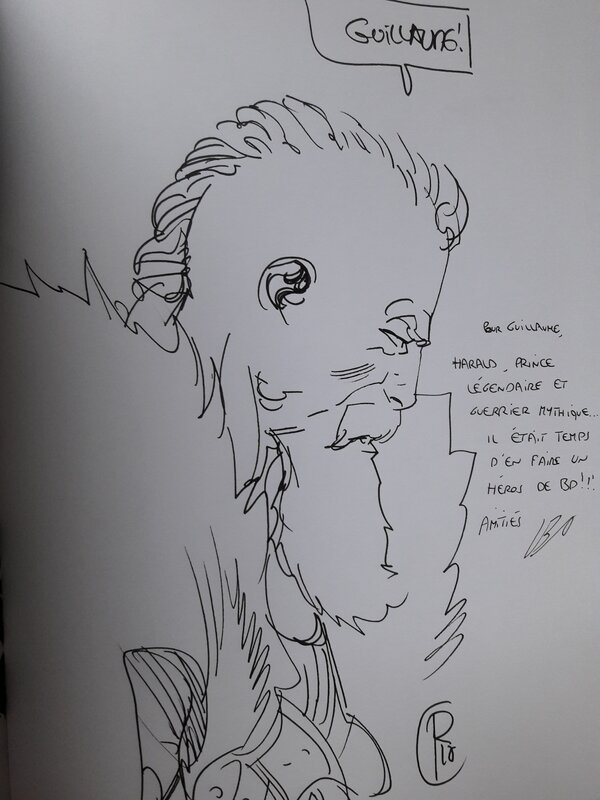 GUILLAUME!
POUR GUILLAUME,
HARALD, PRINCE
LÉGENDAIRE ET
GUERRIER MYTHIQUE...
IL ÉTAIT TEMPS
D'EN FAIRE UN
HÉROS DE BD!!!
AMITIÉS